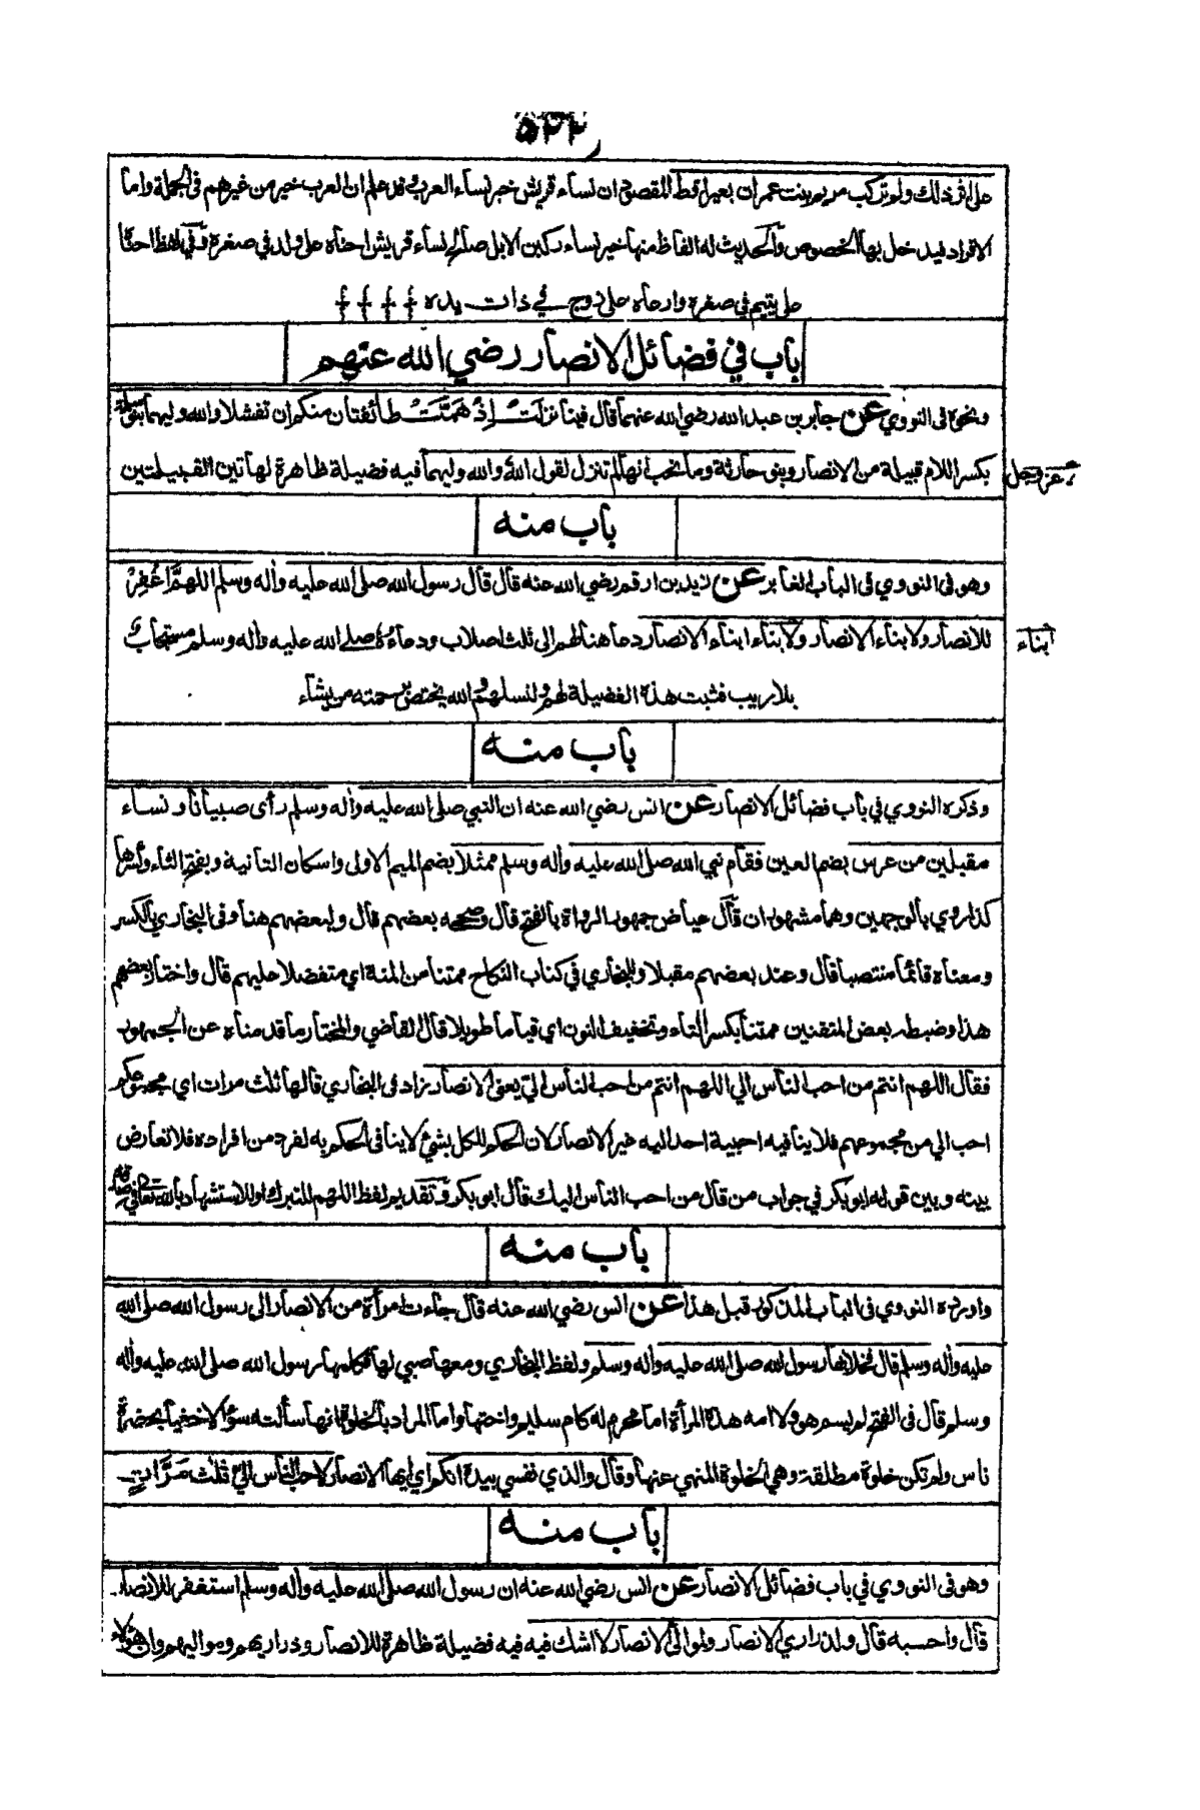 ٥٢٢
على اثر ذلك ولم تركب مريم بنت عمران بعيرا قط المقصود ان نساء قريش خير نساء العرب قد علم ان العرب خير من غيرهم فى الجملة واما
الافراد فيدخل بها الخصوص والحديث له الفاظ منها خير نساء ركبن الابل صالح نساء قريش احناه على ولد في صغره وفي لفظ احنا
على يتيم في صغره وارعاه على زوج في ذات يده
باب في فضائل الانصار رضي الله عنهم
ونحوه فى النووي عن جابر بن عبد الله رضي الله عنهما قال فينا نزلت اذ همت طائفتان منكم ان تفشلا والله وليهما بنو سلمة
بكسر اللام قبيلة من الانصار وبنو حارثة وما نحب انها لم تنزل لقول الله والله وليهما فيه فضيلة ظاهرة لهاتين القبيلتين
عز وجل
باب منه
وهو فى النووي فى الباب الغابر عن زيد بن ارقم رضي الله عنه قال قال رسول الله صلى الله عليه واله وسلم اللهم اغفر
للانصار ولابناء الانصار ولابناء ابناء الانصار دعا هنا لهم الى ثلث اصلاب ودعاؤه صلى الله عليه واله وسلم مستجاب
ابناء
بلا ريب فثبت هذه الفضيلة لهم ولنسلهم والله يختص برحمته من يشاء
باب منه
وذكره النووي في باب فضائل الانصار عن انس رضي الله عنه ان النبي صلى الله عليه واله وسلم رأى صبيانا ونساء
مقبلين من عرس بضم العين فقام نبي الله صلى الله عليه واله وسلم ممثلا بضم الميم الاولى واسكان الثانية وبفتح الثاء وكسرها
كذا روي بالوجهين وهما مشهوران قال عياض جمهور الرواة بالفتح قال وصححه بعضهم قال ولبعضهم هنا وفى البخاري بالكسر
ومعناه قائما منتصبا قال وعند بعضهم مقبلا وللبخاري في كتاب النكاح ممتنا من المنة اي متفضلا عليهم قال واختار بعضهم
هذا وضبطه بعض المتقنين ممتنا بكسر التاء وتخفيف النون اي قياما طويلا قال القاضي والمختار ما قدمناه عن الجمهور
فقال اللهم انتم من احب الناس الي اللهم انتم من احب الناس الي يعني الانصار زاد فى البخاري قالها ثلث مرات اي مجموعكم
احب الي من مجموعهم فلا ينافيه احبية احد اليه غير الانصار لان الحكم للكل بشئ لا ينافى الحكم به لفرد من افراده فلا تعارض
بينه وبين قوله ابو بكر في جواب من قال من احب الناس اليك قال ابو بكر وتقديم لفظ اللهم للتبرك او للاستشهاد بالله تعالى في
باب منه
واورده النووي فى الباب المذكور قبل هذا عن انس رضي الله عنه قال جاءت امرأة من الانصار الى رسول الله صلى الله
عليه واله وسلم قال فخلا بها رسول الله صلى الله عليه واله وسلم ولفظ البخاري ومعها صبي لها فكلمها رسول الله صلى الله عليه واله
وسلم قال فى الفتح لم يسم هو ولا امه هذه المرأة اما محرم له كام سليم واختها واما المراد بالخلوة انها سألته سؤالا خفيا بحضرة
ناس ولم تكن خلوة مطلقة وهي الخلوة المنهي عنها وقال والذي نفسي بيده انكم اي ايها الانصار لاحب الناس الي ثلث مرات
باب منه
وهو فى النووي في باب فضائل الانصار عن انس رضي الله عنه ان رسول الله صلى الله عليه واله وسلم استغفر للانصار
قال واحسبه قال ولذراري الانصار ولموالي الانصار لا اشك فيه فيه فضيلة ظاهرة للانصار وذراريهم ومواليهم وان هؤلاء